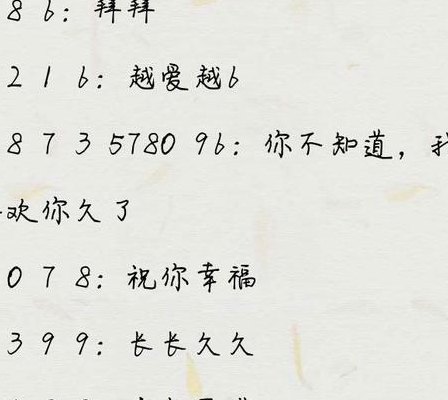 8 6：拜拜
2 1 6：越爱越6
8 7 3 5780 96：你不知道，我
欢你久了
0 7 8：祝你幸福
3 9 9：长长久久